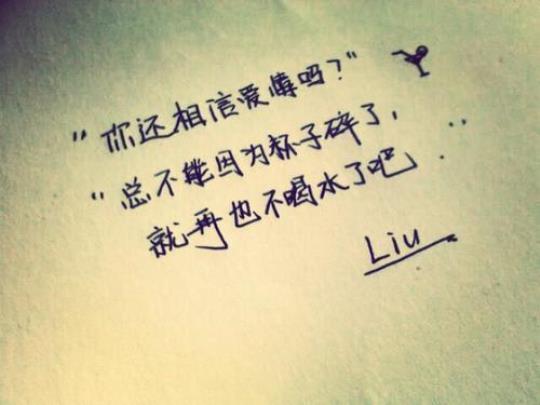 “你还相信爱情吗?”
“总不能因为杯子碎了,
就再也不喝水了吧...
Liu